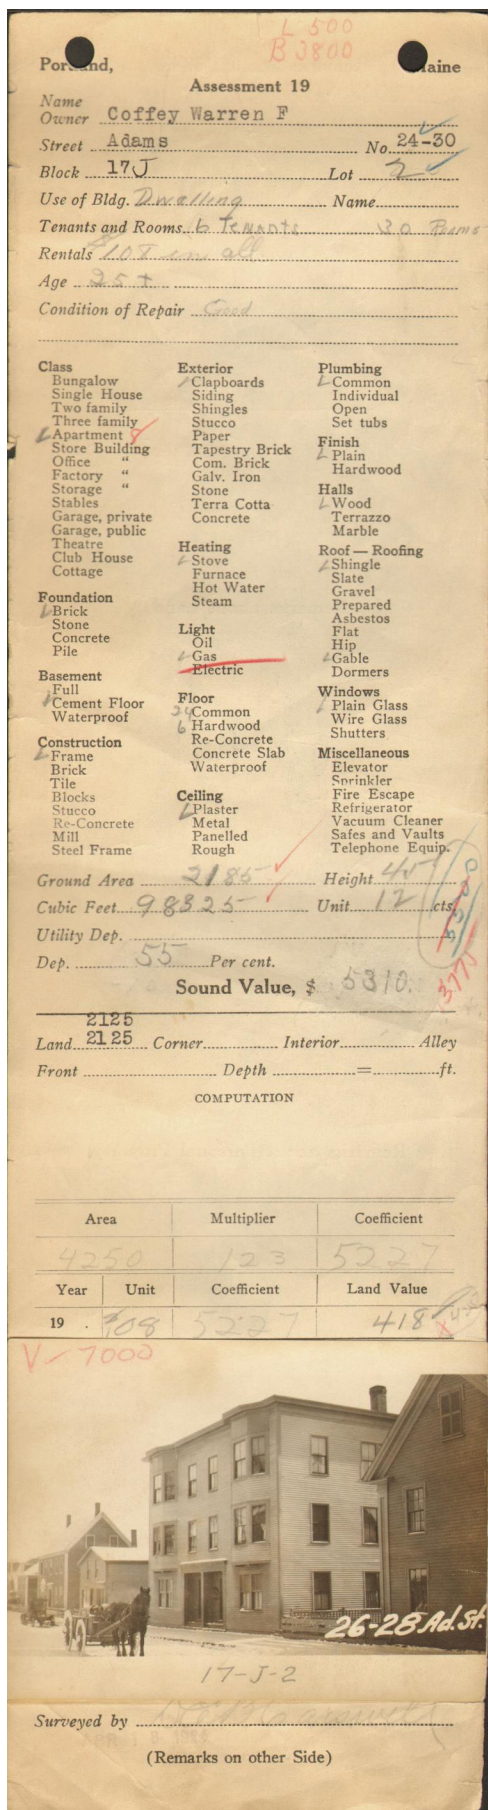 L 500
B 3800
Portland, Maine
Assessment 19
Name
Owner Coffey Warren F
Street Adams No. 24-30
Block 17J Lot 2
Use of Bldg. Dwelling Name
Tenants and Rooms 6 Tenants 30 Rooms
Rentals $108 in all
Age 25+
Condition of Repair Good
Class
Bungalow
Single House
Two family
Three family
Apartment 8
Store Building
Office "
Factory "
Storage "
Stables
Garage, private
Garage, public
Theatre
Club House
Cottage
Foundation
Brick
Stone
Concrete
Pile
Basement
Full
Cement Floor
Waterproof
Construction
Frame
Brick
Tile
Blocks
Stucco
Re-Concrete
Mill
Steel Frame
Exterior
Clapboards
Siding
Shingles
Stucco
Paper
Tapestry Brick
Com. Brick
Galv. Iron
Stone
Terra Cotta
Concrete
Heating
Stove
Furnace
Hot Water
Steam
Light
Oil
Gas
Electric
Floor
24 Common
6 Hardwood
Re-Concrete
Concrete Slab
Waterproof
Ceiling
Plaster
Metal
Panelled
Rough
Plumbing
Common
Individual
Open
Set tubs
Finish
Plain
Hardwood
Halls
Wood
Terrazzo
Marble
Roof — Roofing
Shingle
Slate
Gravel
Prepared
Asbestos
Flat
Hip
Gable
Dormers
Windows
Plain Glass
Wire Glass
Shutters
Miscellaneous
Elevator
Sprinkler
Fire Escape
Refrigerator
Vacuum Cleaner
Safes and Vaults
Telephone Equip.
Ground Area 2185 Height 45
Cubic Feet 98325 Unit 12 cts.
Utility Dep.
Dep. 55 Per cent.
3770
Sound Value, $ 5310.
2125
Land 2125 Corner Interior Alley
Front Depth = ft.
COMPUTATION
Area Multiplier Coefficient
4250 123 5227
Year Unit Coefficient Land Value
19 . $.08 5227 418
V-7000
26-28 Ad. St.
17-J-2
Surveyed by
(Remarks on other Side)